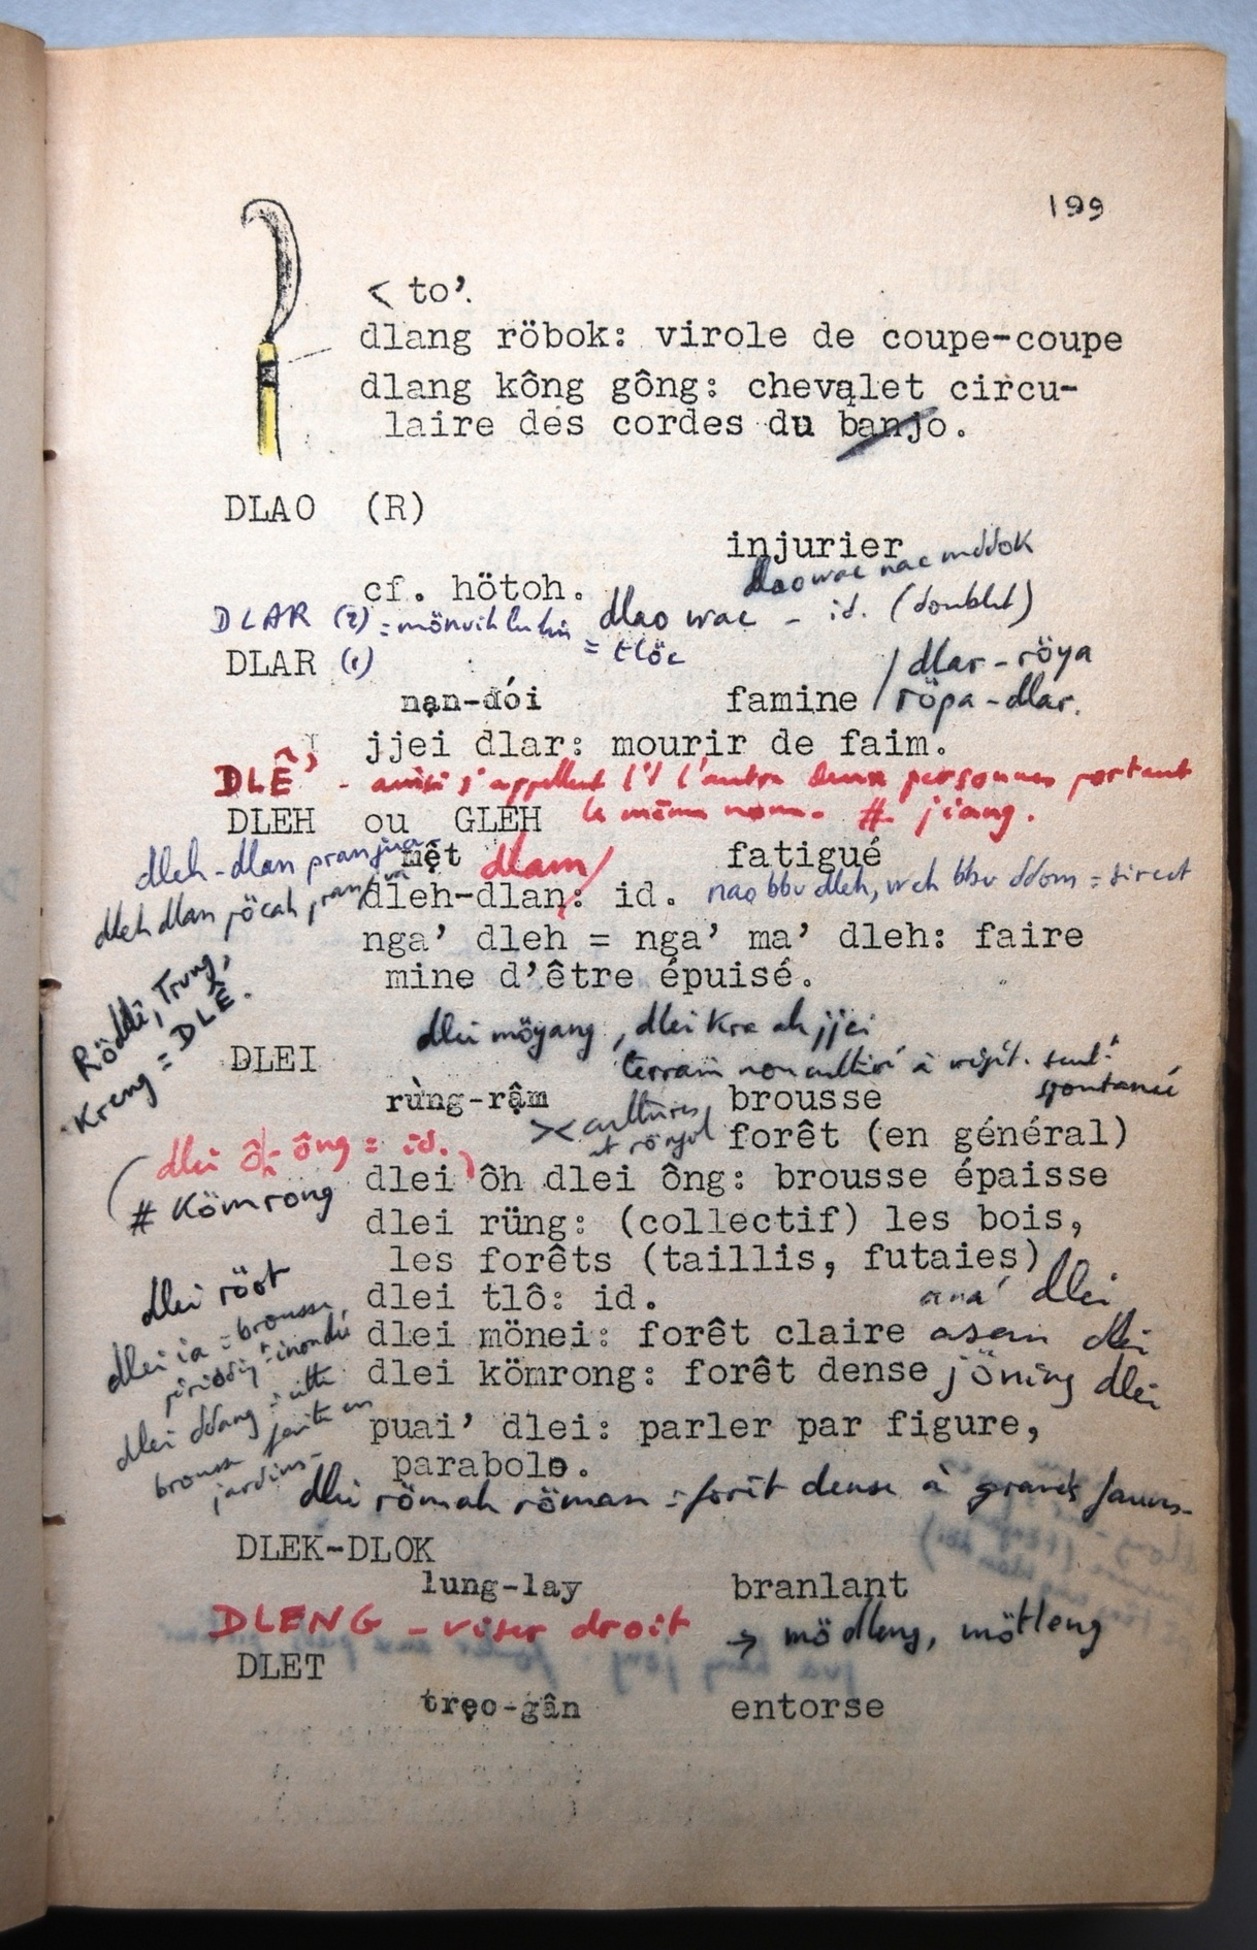 199
< to’.
dlang röbok: virole de coupe-coupe
dlang kông gông: chevalet circu-
laire des cordes du banjo.
DLAO (R)
injurier
dlao wac nac mddok
cf. hötoh.
dlao wac - id. (doublet)
DLAR (2) =
= tlöc
DLAR (1)
nạn-đói famine / dlar-röya
/ röpa-dlar.
jjei dlar: mourir de faim.
DLỄ’ - ainsi s'appellent l'1 l'autre deux personnes portant
le même nom. # jiang.
DLEH ou GLEH
mệt fatigué
dlam/
dleh-dlan: id.
nao bbu dleh, weh bbu ddom = direct
dleh-dlan pran jua
dleh dlan röcah pran jua
nga’ dleh = nga’ ma’ dleh: faire
mine d’être épuisé.
Röddê, Trung,
Kreng = DLÊ.
dlei möyang, dlei kra ah jjei
DLEI
terrain non cultivé à végét. seulᵗ
spontanée
rừng-rậm brousse
>< cultures
et
forêt (en général)
(dlei ôh ông = id.)
# kömrong
dlei ôh dlei ông: brousse épaisse
dlei rüng: (collectif) les bois,
les forêts (taillis, futaies)
dlei tlô: id.
ana' dlei
dlei mönei: forêt claire asan dlei
dlei kömrong: forêt dense jöning dlei
dlei röot
dlei ia = brousse
périodiqᵗ inondée
dlei ddang =
brousse faite en
jardins-
puai’ dlei: parler par figure,
parabole.
dlei römah röman = forêt dense à grands fauves-
DLEK-DLOK
lung-lay branlant
DLENG - viser droit → mödleng, mötleng
DLET
trẹo-gân entorse